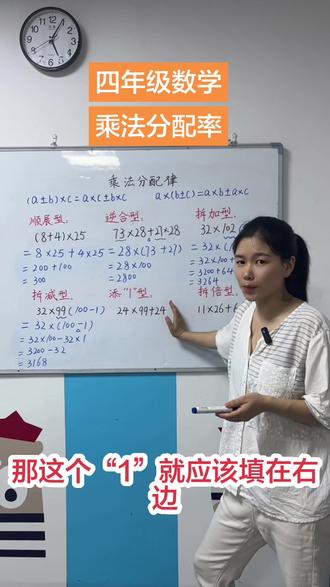 四年级数学
乘法分配率
乘法分配律
(a±b)×c=a×c±b×c
a×(b±c)=a×b±a×c
顺展型:
(8+4)×25
=8×25+4×25
=200+100
=300
逆合型:
73×28+27×28
=28×(73+27)
=28×100
=2800
拆加型:
32×102
=32×(
=32×100
=3200+64
=3264
拆减型:
32×99(100-1)
=32×(100-1)
=32×100-32×1
=3200-32
=3168
添"1"型:
24×99+24
拆倍型:
11×26+
那这个“1”就应该填在右
边